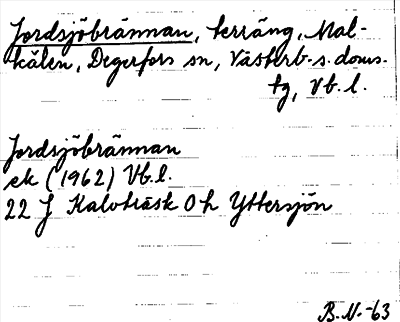 Jordsjöbrännan, terräng, Mal-
kälen, Degerfors sn, Västerb. s. doms.
tg, Vb. l.
Jordsjöbrännan
ek (1962) Vb. l.
22 J Kalvträsk O h Yttersjön
B. N. -63